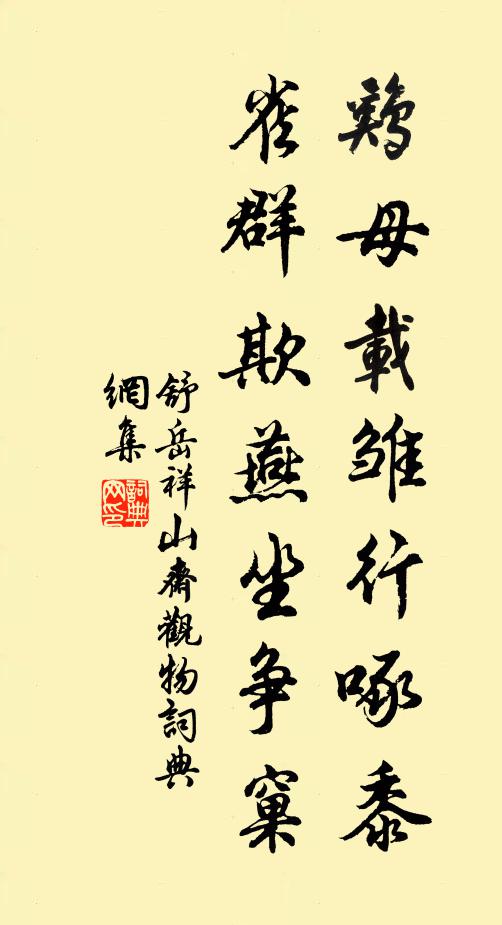 鷄母載雏行啄黍
雀群欺燕坐争窠
舒岳祥山齋觀物詞典
網集
詞典
网印